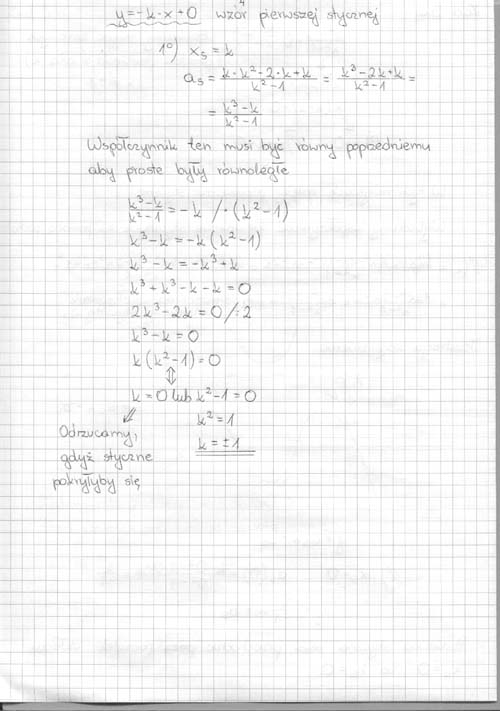 y=-k·x+0 wzór pierwszej stycznej
1°) x₅ = k
a₅ = \frac{k·k²-2·k+k}{k²-1} = \frac{k³-2k+k}{k²-1} =
= \frac{k³-k}{k²-1}
Współczynnik ten musi być równy poprzedniemu
aby proste były równoległe
\frac{k³-k}{k²-1} = -k /·(k²-1)
k³-k = -k(k²-1)
k³-k = -k³+k
k³+k³-k-k=0
2k³-2k=0/:2
k³-k=0
k(k²-1)=0
⇕
k=0 lub k²-1=0
⇙ k²=1
Odrzucamy, k=±1
gdyż styczne
pokryłyby się